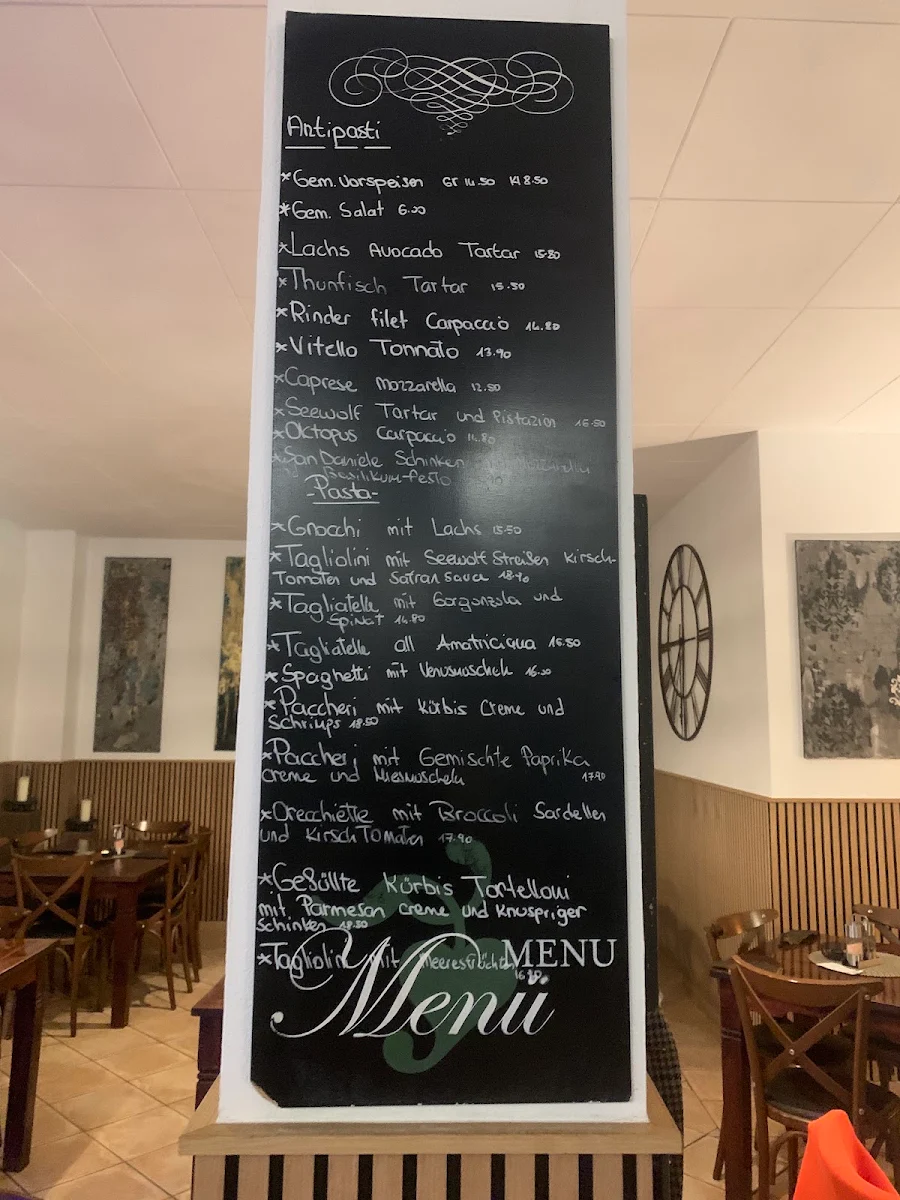 Antipasti
*Gem. Vorspeisen Gr 14.50 Kl 8.50
*Gem. Salat 6.20
*Lachs Avocado Tartar 15.80
*Thunfisch Tartar 15.50
*Rinder filet Carpaccio 14.80
*Vitello Tonnato 13.90
*Caprese mozzarella 12.50
*Seewolf Tartar und Pistazien 16.50
*Oktopus Carpaccio 14.80
*San Daniele Schinken Mozzarella
Basilikum-Pesto
-Pasta-
*Gnocchi mit Lachs 15.50
*Tagliolini mit Seewolf Streifen Kirsch-
Tomaten und Safran Sauce 18.90
*Tagliatelle mit Gorgonzola und
Spinat 14.80
*Tagliatelle all Amatriciana 15.50
*Spaghetti mit Venusmuscheln 16.20
*Paccheri mit Kürbis Creme und
Schrimps 18.50
*Paccheri mit Gemischte Paprika
creme und Miesmuscheln 17.90
*Orecchiette mit Broccoli Sardellen
und Kirsch Tomaten 17.90
*Gefüllte Kürbis Tortelloni
mit Parmesan creme und Knuspriger
Schinken 18.50
*Tagliolini mit Meeresfrüchten
MENU
Menü